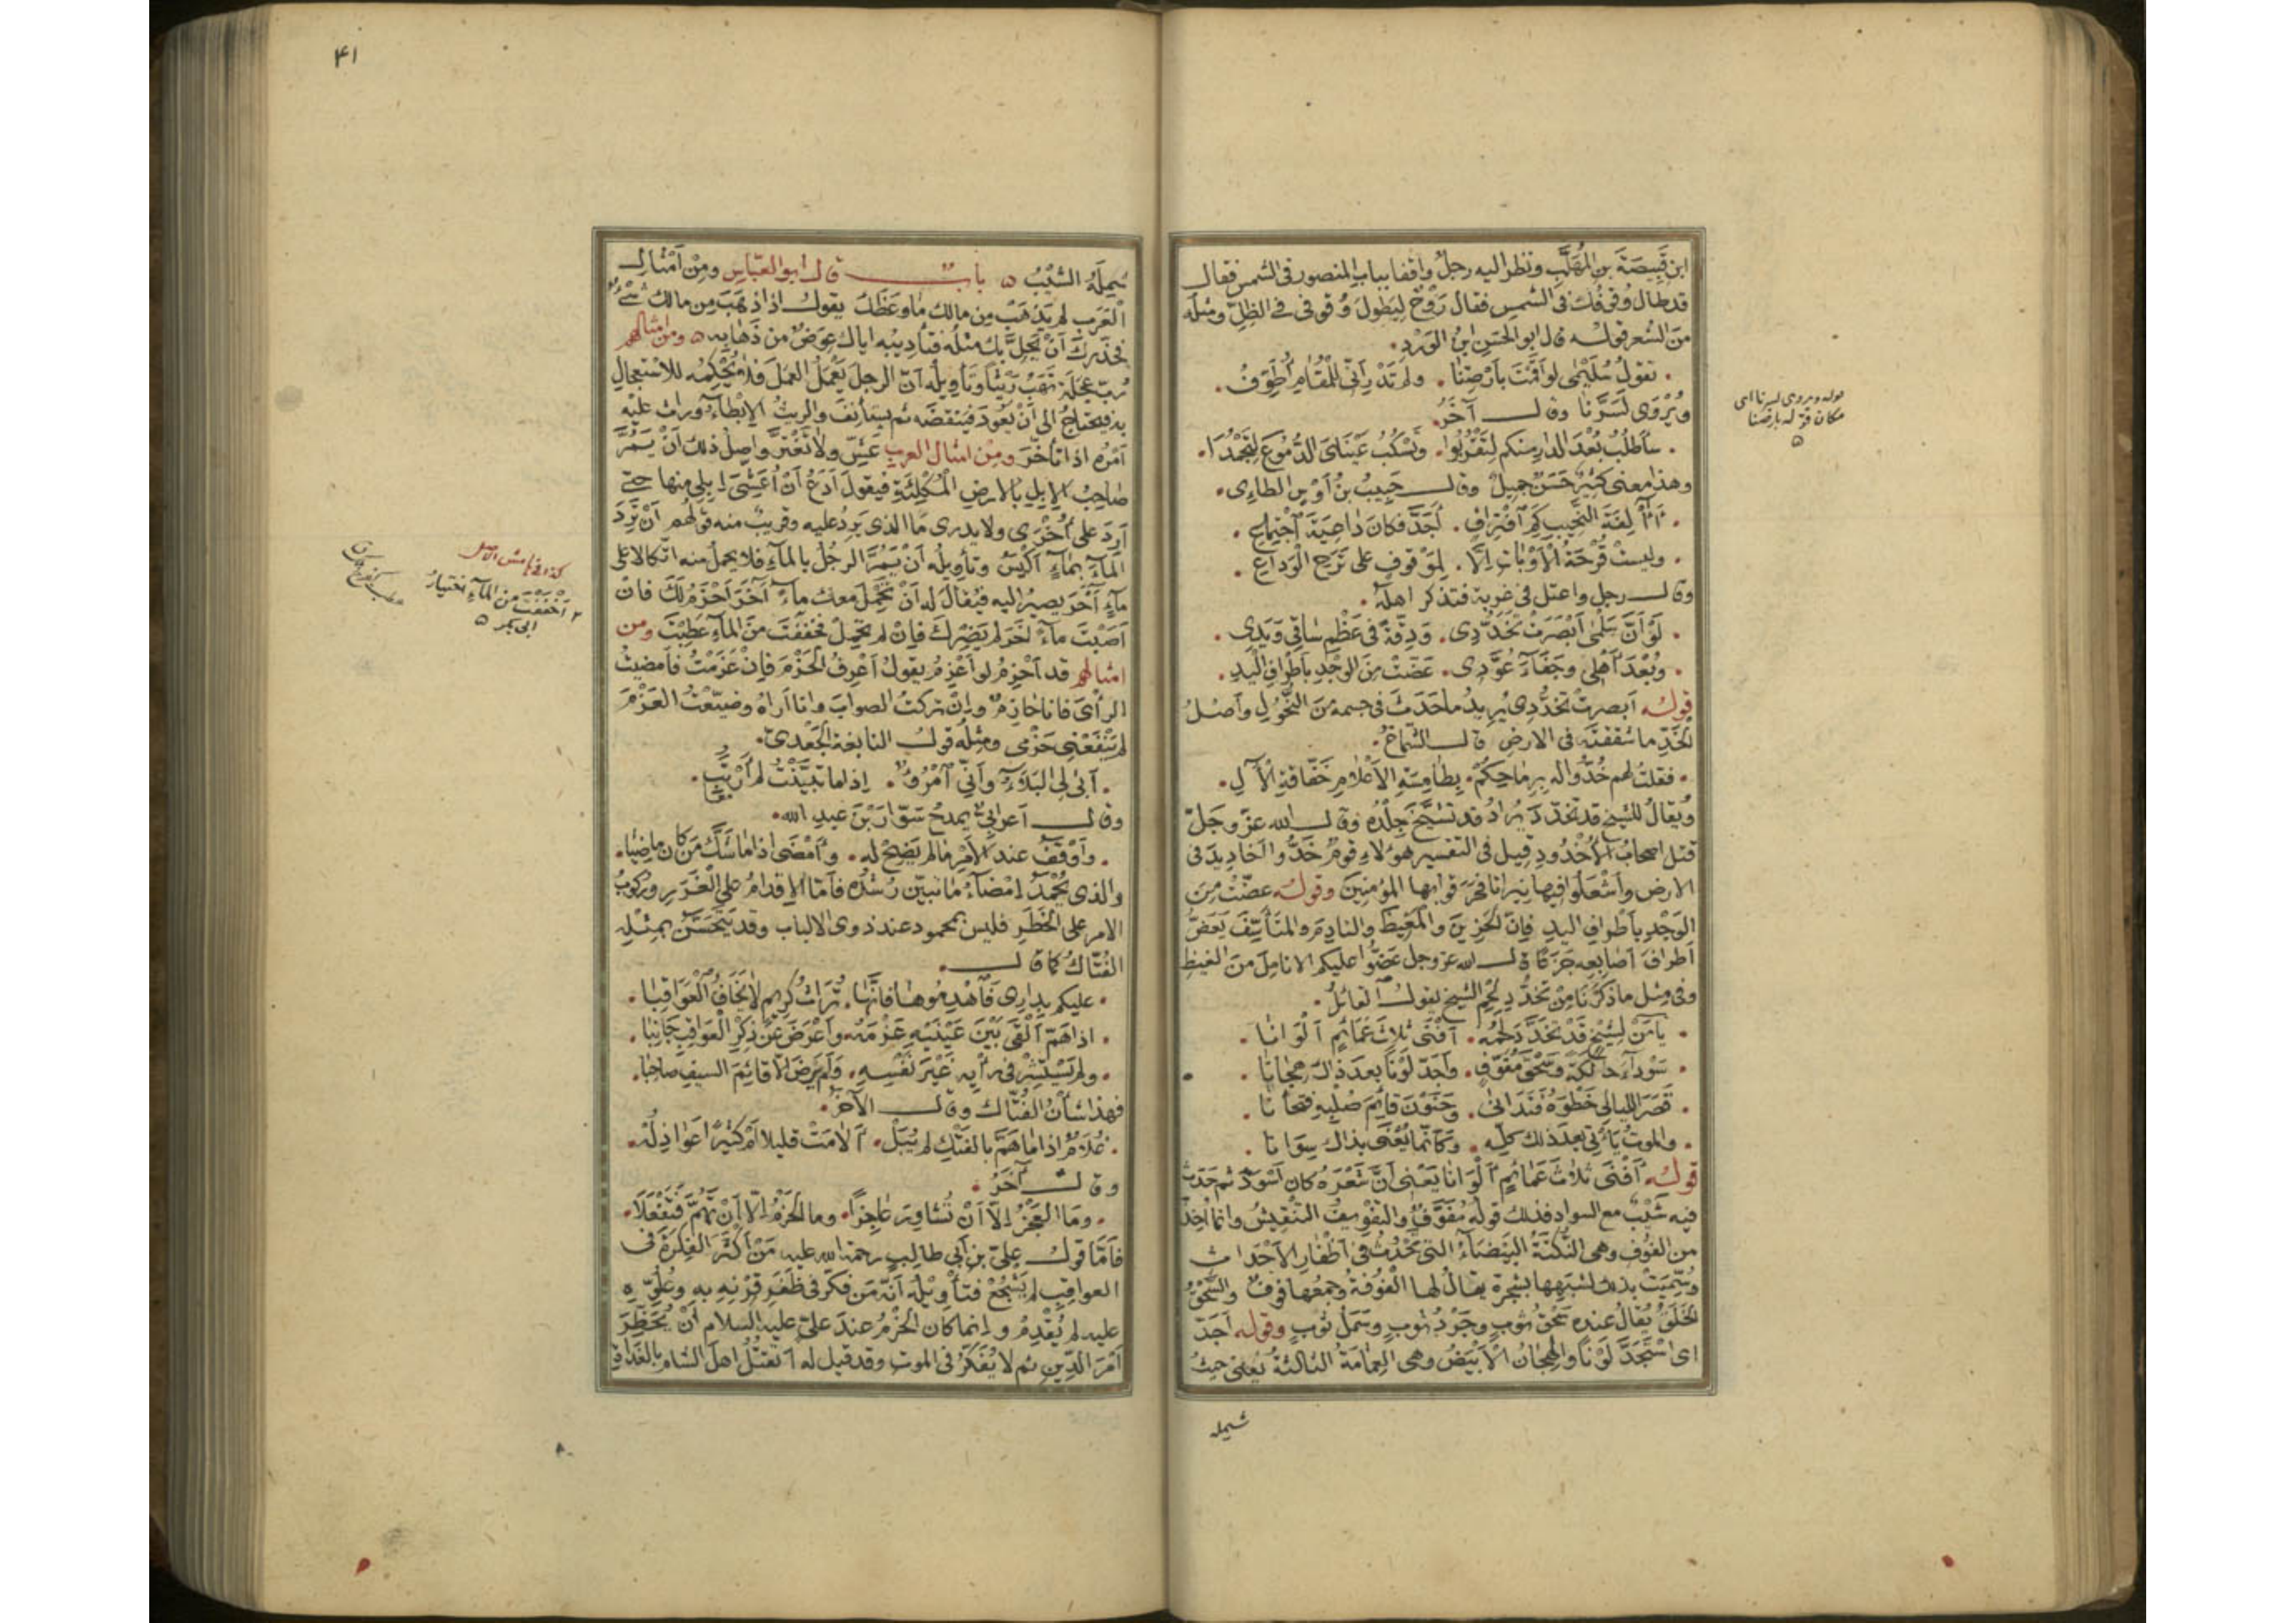 ابن قَبِيصَةَ بن المُهَلَّبِ ونظر اليه رجلٌ واقفا بباب المنصور فى الشمس فقال
قد طال وُقوفُك فى الشمسِ فقال رَوْحٌ لِيَطُولَ وُقوفى فى الظِلِّ ومثله
مِنَ الشعر قوله قال ابو الحَسَنِ ابنُ الوَرْدِ
تقولُ سُلَيْمى لو اَقَمْتَ بأَرْضِنا ولم تَدْرِ أنّى لِلْمُقامِ أُطَوِّفُ
ويُرْوَى لَسَرَّنا وقال آخَرُ
سأَطْلُبُ بُعْدَ الدارِ منكم لِتَقْرُبُوا وتَسْكُبُ عَيْنَاىَ الدُّمُوعَ لِتَجْمُدَا
وهذا معنى كثيرٌ حَسَنٌ جميلٌ وقال حَبِيبُ بنُ أَوْسٍ الطاءِى
أَآلِفَةَ النَّحِيبِ كَمِ ٱفْتِراقٍ أَجَدَّ فكان داعِيَةَ ٱجْتِماعِ
وليست فَرْحَةُ الْأَوْبَاتِ اِلَّا لِمَوْقوفٍ على تَرَحِ الْوَداعِ
وقال رجل واعتل فى غربة فتذكر اهله
لَوْ اَنَّ سَلْمَى اَبْصَرَتْ تَخَدُّدِى وَدِقَّةً فى عَظْمِ ساقى وَيَدِى
وبُعْدَ اَهْلى وجَفَاءَ عُوَّدِى عَضَّتْ مِنَ الوَجْدِ بأَطْرافِ الْيَدِ
قوله اَبصرتْ تخدُّدى يُرِيدُ ما حَدَثَ فى جسمه مِنَ النُّحُولِ وأَصْلُ
الخَدِّ ما شققتَه فى الارضِ قال الشماخُ
فقلتُ لهم خُدُّوا له بِرِماحِكُمْ بِطَامِسَةِ الأَعْلامِ خَفَّاقَةِ الْآلِ
ويُقالُ للشيخ قد تخدّد يُرادُ قد تشَنَّجَ جِلْدُه وقال الله عزّ وجَلّ
قتل اصحابُ الْأُخْدُودِ قيل فى التفسير هؤلاءِ قومٌ خَدُّوا اَخاديدَ فى
الارض وأَشْعَلُوا فيها نيرانا فحَرَقوا بها المؤمنين وقوله عضّتْ مِنَ
الوَجْدِ باَطْرافِ اليدِ فإنّ الحَزِينَ والمَغِيظَ والنادِمَ والمُتَأَسِّفَ يَعَضُّ
أطرافَ اَصابِعِه جَزَعًا قال الله عز وجل عَضُّوا عليكم الانامِلَ مِنَ الغيظِ
وفى مِثل ما ذكرنا مِنْ تخدُّدِ لَحْمِ الشيخ يقول القائلُ
يا مَنْ لِشَيْخٍ قَدْ تخَدَّدَ لَحْمُه اَفْنَى ثَلاثَ عَمائِمٍ اَلْوَانا
سَوْداءَ حالِكَةً وسَحْقَ مُفَوَّفٍ وأَجَدَّ لَوْنًا بعدَ ذاكَ هِجانَا
قَصَرَ الليالى خَطْوَهُ فَتَدَانَى وحَنَوْنَ قائِمَ صُلْبِهِ فتحانَا
والموتُ يَأْتى بعدَ ذلك كلِّهِ وكأنّما يُعْنَى بذاك سِوَانا
قوله أَفْنَى ثلاثَ عَمائمٍ اَلْوَانا يَعْنى اَنَّ شَعْرَهُ كان أسْوَدَ ثم حَدَثَ
فيه شَيْبٌ مع السواد فذلك قوله مُفَوَّفٌ والتفويفُ التنقيشُ وانما أُخِذَ
من الفُوفِ وهى النُّكْتَةُ البَيْضَاءُ التى تَحْدُثُ فى اَظْفارِ الأَحْداثِ
وسُمِّيَتْ بذلك لشَبَهِها بشجرة يقالُ لها الْفُوفَةُ وجَمْعُها فوفٌ والسَّحْقُ
الخَلَقُ يُقالُ عنده سَحْقُ ثوبٍ وجَرْدُ ثوبٍ وسَمَلُ ثوبٍ وقوله أجَدَّ
اى اسْتَجَدَّ لَوْنًا والهِجانُ الْأَبْيَضُ وهى العِمَامَةُ الثالثةُ يَعْنى حيثُ
شمله
مكان قوله بارضنا
۴۱
شَمِلَهُ الشَّيْبُ باب قال ابو العبّاسِ ومِنْ اَمْثالِ
الْعَرَبِ لم يَذْهَبْ مِن مالك ما وَعَظَكَ يقول اذا ذهَبَ مِن مالك شىءٌ
فحَذَّرك أَنْ يَحِلَّ بك مثلُه فتأديبُه اياك عِوَضٌ من ذَهابِه ومن امثالهم
رُبَّ عَجَلَةٍ تَهَبُ رَيْثًا وتأويلُه اَنّ الرجلَ يَعْمَلُ العملَ فلا يُحْكِمُه للاستعجالِ
به فيحتاجُ الى أَنْ يَعُودَ فيَنْقضَه ثم يستأنِفَ والريثُ الإبْطاءُ وراث عليه
اَمْرُه اذا تأخّرَ ومِنْ امثال العرب عَشِّ ولا تَغْتَرَّ واصلُ ذلك اَنْ يَمُرَّ
صاحِبُ الإبلِ بالارضِ الْمُكْلِئَةِ فيقولَ اَدَعُ أَنْ أُعَشِّىَ اِبلى منها حتى
اَرِدَ على أُخْرَى ولا يدرى ما الذى يَرِدُ عليه وقريبٌ منه قولُهم اَنْ تَرِدَ
الماءَ بماءٍ أَكْيَسُ وتأويلُه أَنْ يَمُرَّ الرجُلُ بالماءِ فلا يحملُ منه اتّكالا على
ماءٍ آخَرَ يصيرُ اليه فيُقالُ له اَنْ تَحْمِلَ معك ماءً آخَرَ اَحْزَمُ لك فان
اَصَبْتَ ماءً آخَرَ لم يَضِرْكَ فإنْ لم تحمِلْ فخَفَفْتَ مِنَ الماءِ عَطِبْتَ ومن
امثالهم قد اَحْزِمُ لو أَعْزِمُ يقولُ اَعْرِفُ الْحَزْمَ فإنْ عَزَمْتُ فأَمضيتُ
الرأىَ فانا حازِمٌ وإنْ تركتُ الصوابَ وانا اَراهُ وضيّعْتُ العَزْمَ
لم يَنْفَعْنى حَزْمى ومثلُه قولُ النابغة الجَعْدىّ
أَبَى لِىَ البَلاءُ وأَنّى ٱمْرُؤٌ اِذا ما تبيَّنْتُ لم أَرْتَبِ
وقال اَعرابىٌّ يمدحُ سَوّارَ بْنَ عبدِ الله
وأَوْقَفُ عند الأمْرِ ما لم يَضِحْ له وأَمْضَى اذا ما شَكَّ مَن كان ماضِيَا
والذى يُحْمَدُ اِمْضاءُ ما تبيّن رُشْدُه فأمّا الإقدامُ على الْغَرَرِ وركوبُ
الامر على الخَطَرِ فليس بمحمود عند ذوى الالباب وقد يَتَحَسَّنُ بمِثْلِه
الفُتّاكُ كما قال
عليكم بدارِى فَٱهْدِمُوها فإنّها تُراثُ كرِيمٍ لا يَخَافُ الْعَواقِبا
اذا هَمّ أَلْقَى بَيْنَ عَيْنَيْهِ عَزْمَهُ وأَعْرَضَ عَنْ ذِكْرِ الْعَواقِبِ جَانِبَا
ولم يَسْتَشِرْ فى رَأْيِهِ غَيْرَ نَفْسِهِ ولم يَرْضَ اِلّا قائِمَ السيفِ صاحِبَا
فهذا شأنُ الفُتّاك وقال الآخَرُ
غُلامٌ اذا ما هَمَّ بالفَتْكِ لم يُبَلْ أَلامَتْ قليلا أَمْ كثيرًا عَواذِلُهْ
وقال آخَرُ
وما العَجْزُ اِلّا أَنْ تُشَاوِرَ عاجِزًا وما الحَزْمُ اِلّا أَنْ تَهُمَّ فتَفْعَلَا
فأمّا قولُ علىّ بن أبى طالب رحمة الله عليه مَنْ أكْثَرَ الفِكْرَةَ فى
العواقبِ لم يَشْجُعْ فتأويلُه أنّه مَن فكّر فى ظَفَرِ قِرْنِهِ به وعُلُوِّه
عليه لم يُقْدِمْ وانما كان الحَزْمُ عندَ علىٍّ عليه السلام أَنْ يَحْظِرَ
أَمْرَ الدِّينِ ثم لا يُفَكِّرَ فى الموت وقد قيل له أتقتُلُ اهلَ الشام بالغداةِ
كذا فى هامش الاصل
أخْفَفْتَ من الماء اختيار
ابى بكر